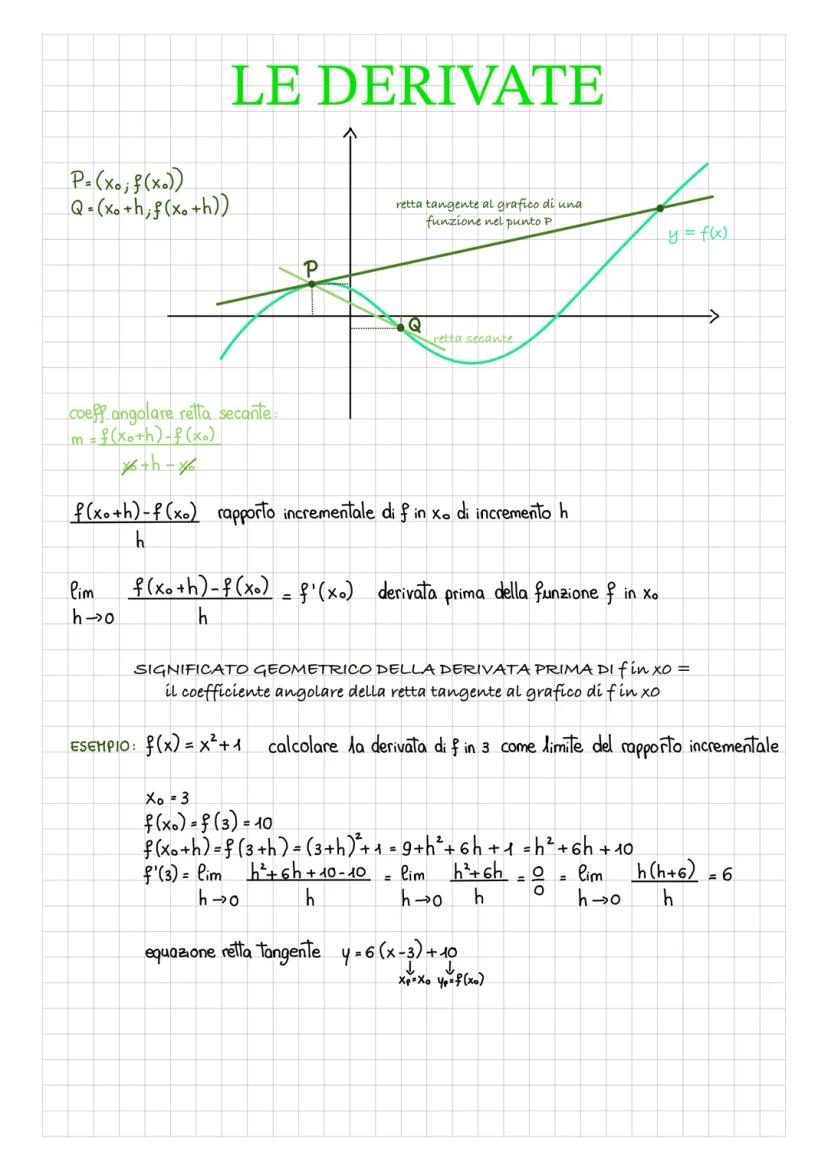 LE DERIVATE
P=(x₀;f(x₀))
Q=(x₀+h;f(x₀+h))
retta tangente al grafico di una
funzione nel punto P
y = f(x)
P
Q
retta secante
coeff. angolare retta secante:
m = f(x₀+h)-f(x₀)
x₀+h-x₀
f(x₀+h)-f(x₀) rapporto incrementale di f in x₀ di incremento h
h
lim f(x₀+h)-f(x₀) = f'(x₀) derivata prima della funzione f in x₀
h→0 h
SIGNIFICATO GEOMETRICO DELLA DERIVATA PRIMA DI f in x0 =
il coefficiente angolare della retta tangente al grafico di f in x0
ESEMPIO: f(x) = x²+1 calcolare la derivata di f in 3 come limite del rapporto incrementale
x₀ = 3
f(x₀) = f(3) = 10
f(x₀+h) = f(3+h) = (3+h)²+1 = 9+h²+6h+1 = h²+6h+10
f'(3) = lim h²+6h+10-10 = lim h²+6h = 0 = lim h(h+6) = 6
h→0 h h→0 h 0 h→0 h
equazione retta tangente y = 6(x-3)+10
↓ ↓
xₚ=x₀ yₚ=f(x₀)